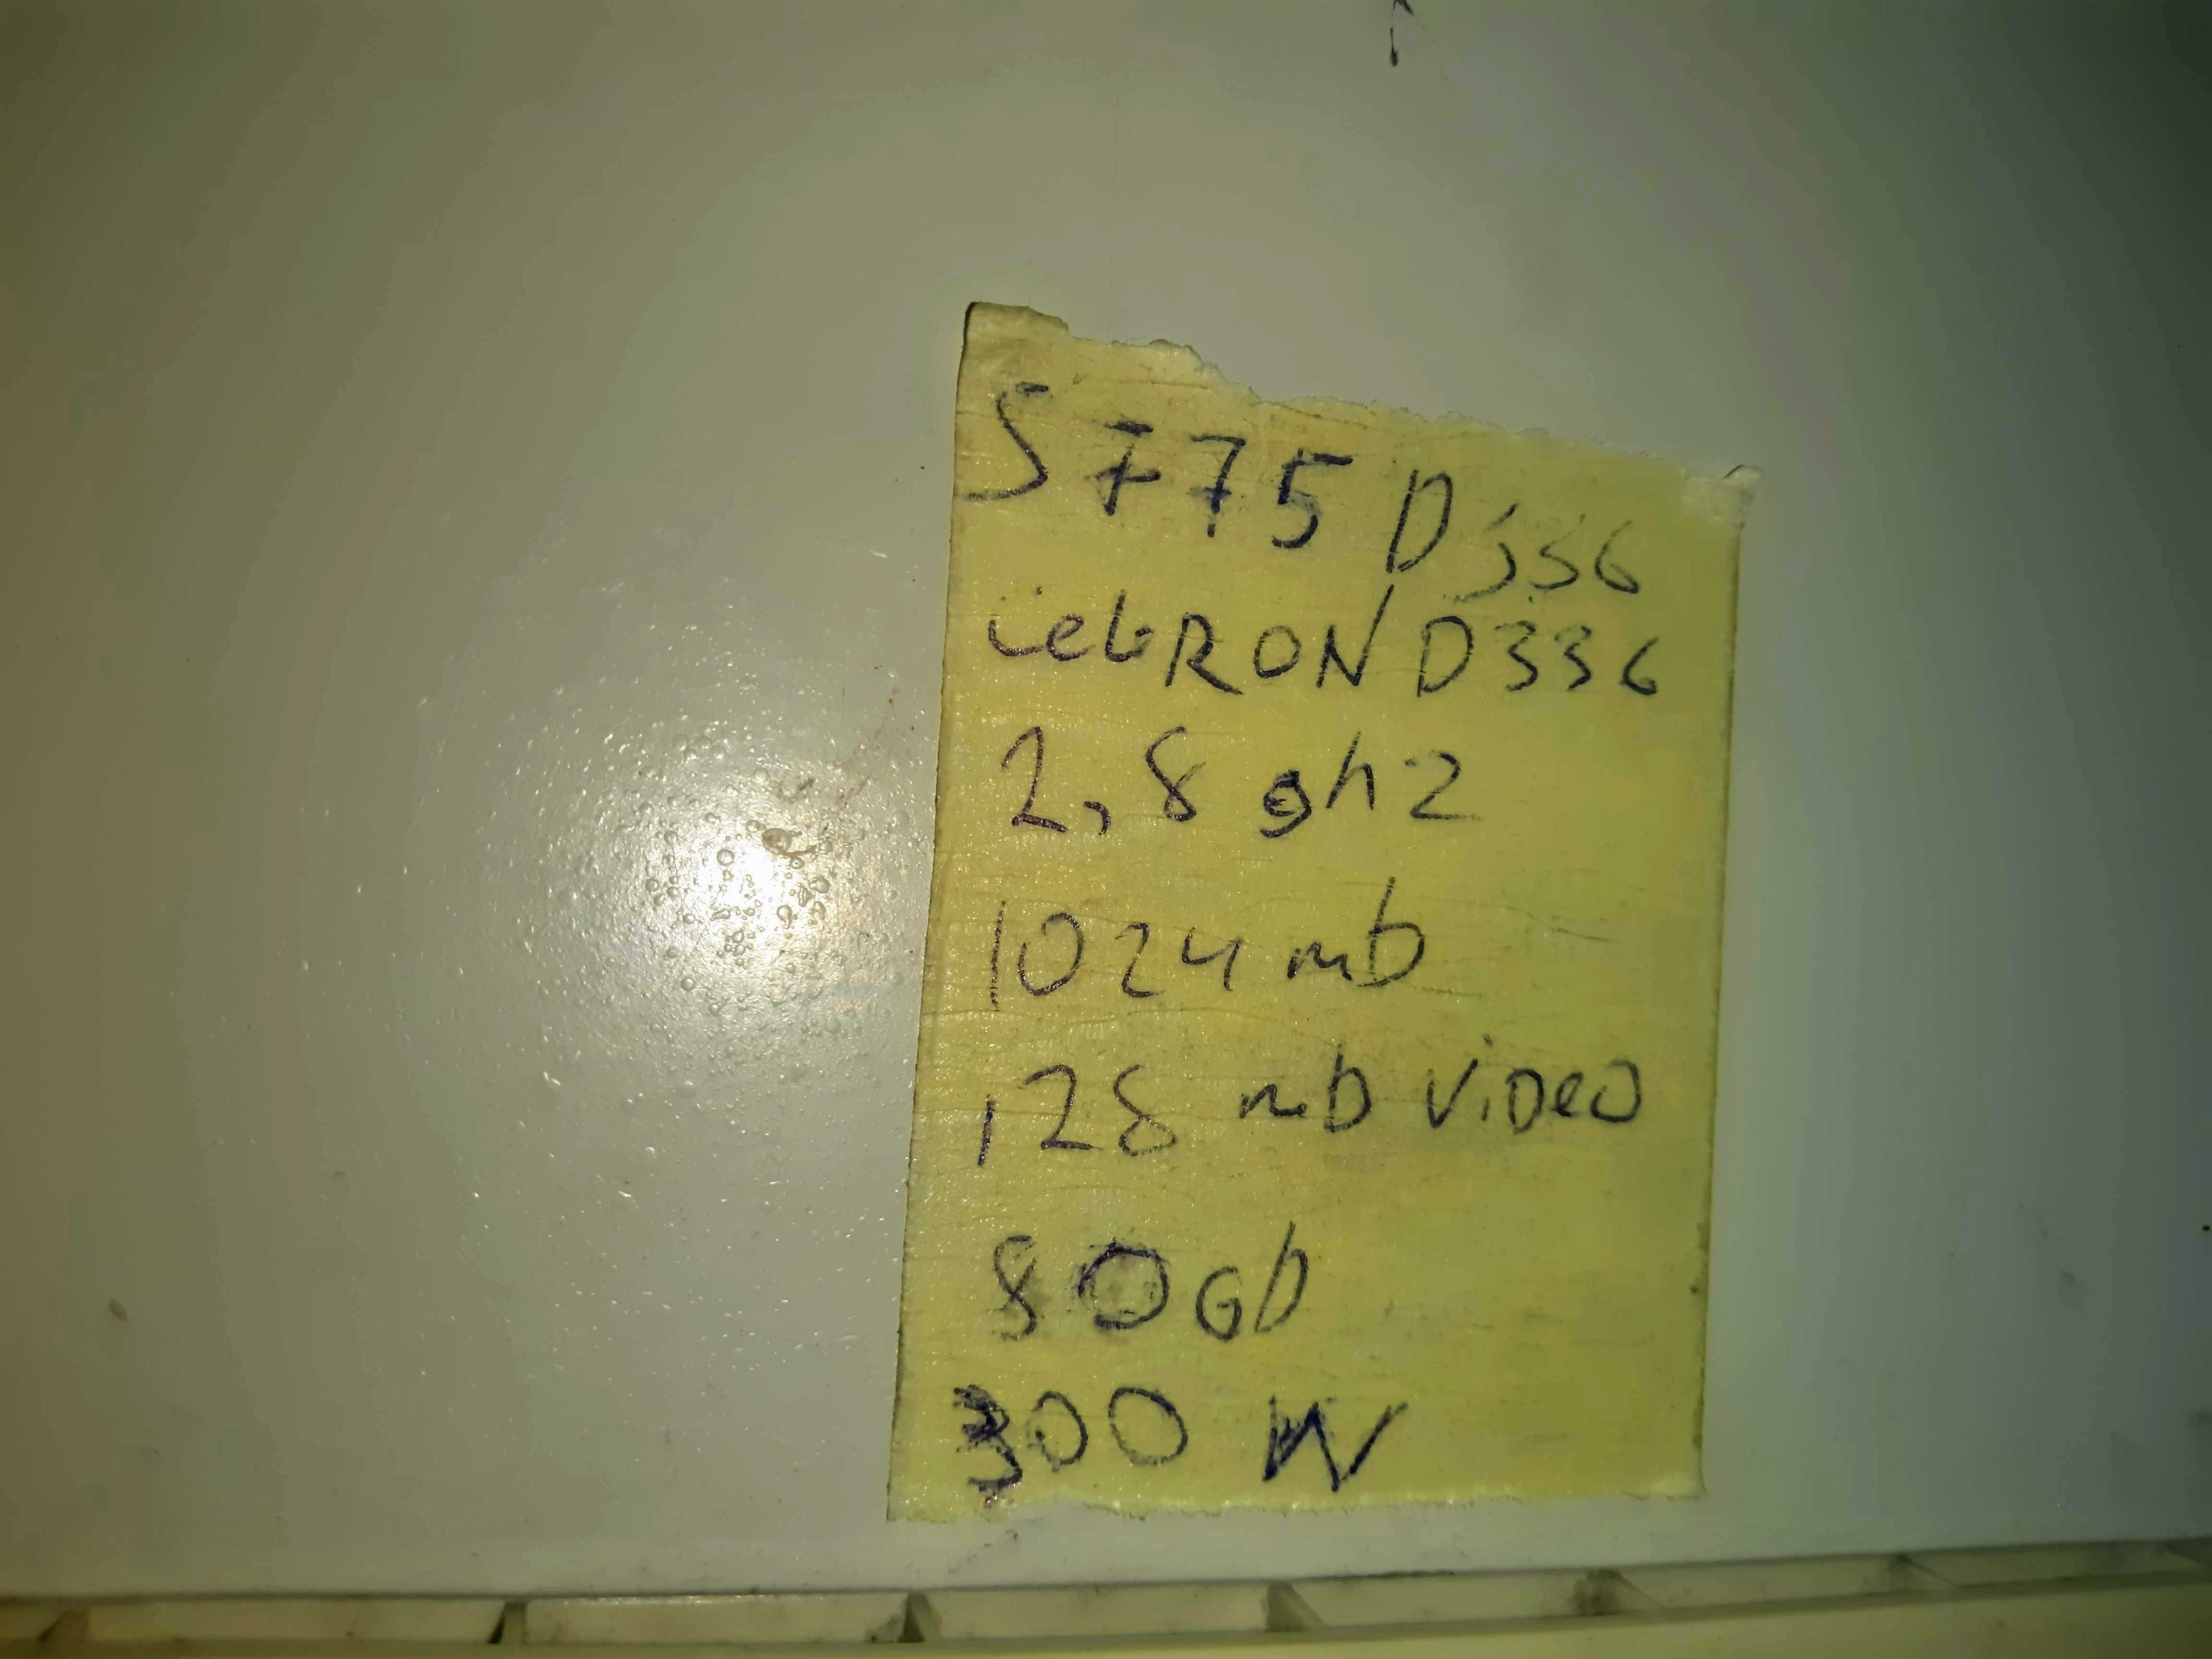 S775 D336
celeRON D336
2,8 ghz
1024 mb
128 mb viDeo
80 Gb
300 W